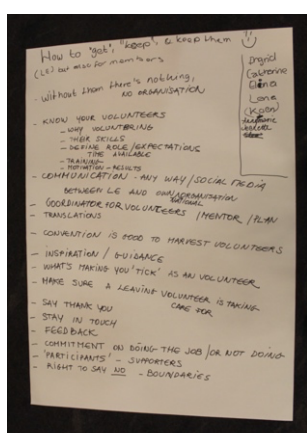 How to "get", "keep", & keep them
(LE) but also for members
- Without them there's nothing,
NO ORGANISATION
- KNOW YOUR VOLUNTEERS
- WHY VOLUNTEERING
- THEIR SKILLS
- DEFINE ROLE/EXPECTATIONS
TIME AVAILABLE
- TRAINING
- MOTIVATION - RESULTS
- COMMUNICATION - ANY WAY/SOCIAL MEDIA
BETWEEN LE AND ORGANISATION
NATIONAL
- COORDINATOR FOR VOLUNTEERS / MENTOR / PLAN
- TRANSLATIONS
- CONVENTION IS GOOD TO HARVEST VOLUNTEERS
- INSPIRATION / GUIDANCE
- WHAT'S MAKING YOU 'TICK' AS AN VOLUNTEER
- MAKE SURE A LEAVING VOLUNTEER IS TAKING
CARE FOR
- SAY THANK YOU
- STAY IN TOUCH
- FEEDBACK
- COMMITMENT ON DOING THE JOB / OR NOT DOING
- 'PARTICIPANTS' - SUPPORTERS
- RIGHT TO SAY NO - BOUNDARIES
Ingrid
Elina